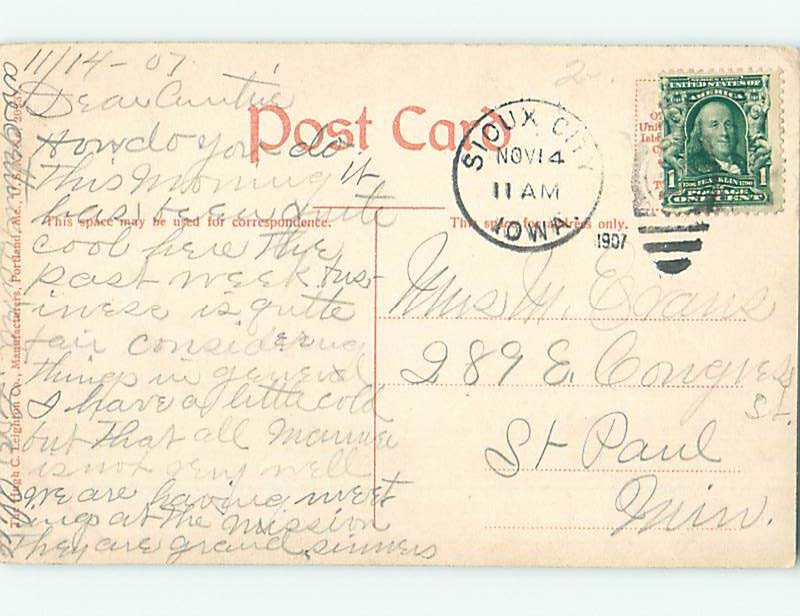 11/14-07
Dear Auntie
How do you do
This Morning it
has been quite
cool here the
past week. Bus-
iness is quite
fair considering
things in general
I have a little cold
but that all Mamma
is not very well
we are having meet
ings at the Mission
They are grand, sinners
Post Card
This space may be used for correspondence.
This space for address only.
The Hugh C. Leighton Co., Manufacturers, Portland, Me., U.S.
SIOUX CITY
NOV 14
11 AM
IOWA.
1907
SERIES 1902
UNITED STATES OF
AMERICA
1706 FRANKLIN 1790
1 POSTAGE 1
ONE CENT
2
Mrs M. Evans
289 E. Congress
St.
St Paul
Minn.